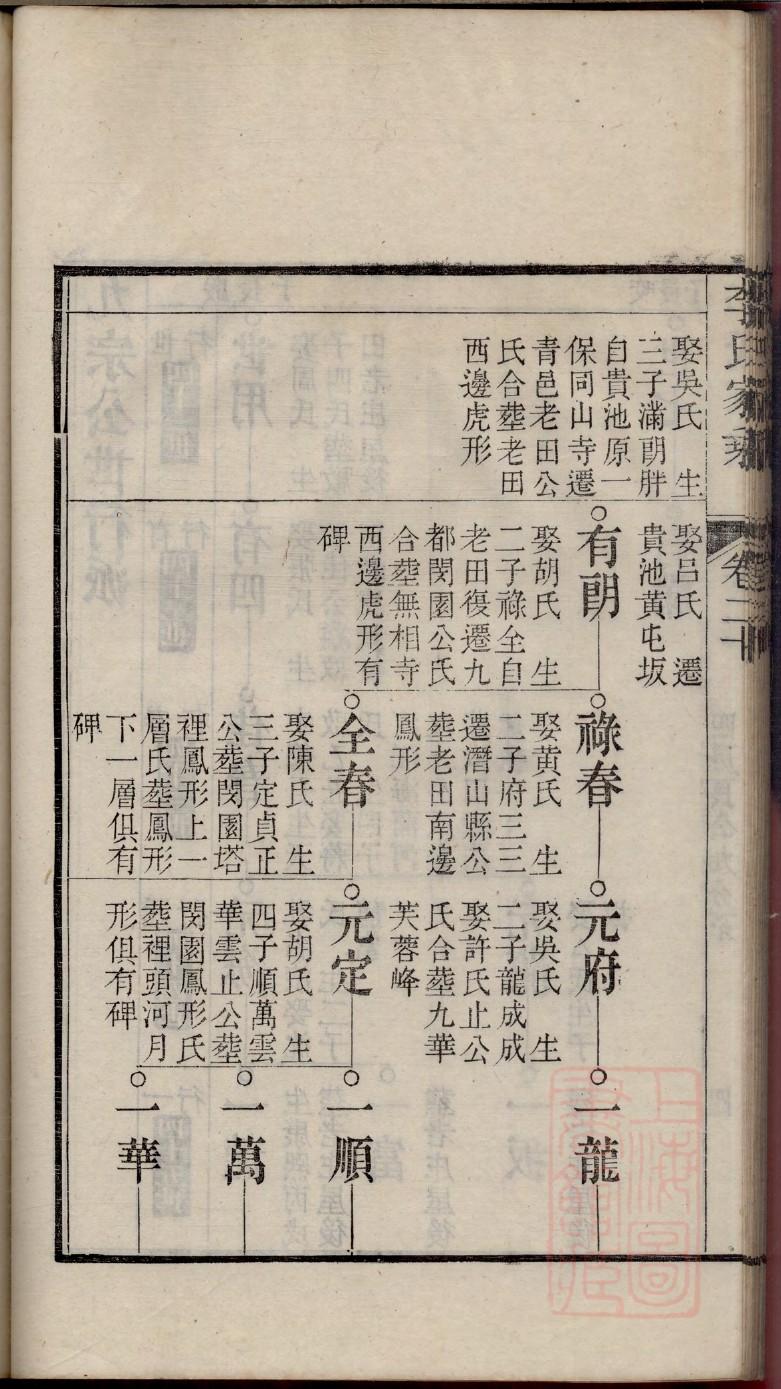 李氏家乘
卷二十
娶吳氏　生
三子滿朙胖
自貴池原一
保同山寺遷
青邑老田公
氏合塟老田
西邊虎形
娶呂氏　遷
貴池黃屯坂
有朙
娶胡氏　生
二子祿全自
老田復遷九
都閔園公氏
合塟無相寺
西邊虎形有
碑
祿春
娶黃氏　生
二子府三三
遷潛山縣公
塟老田南邊
鳳形
全春
娶陳氏　生
三子定貞正
公塟閔園塔
裡鳳形上一
層氏塟鳳形
下一層俱有
碑
元府
娶吳氏　生
二子龍成成
娶許氏止公
氏合塟九華
芙蓉峰
元定
娶胡氏　生
四子順萬雲
華雲止公塟
閔園鳳形氏
塟裡頭河月
形俱有碑
一龍
一順
一萬
一華